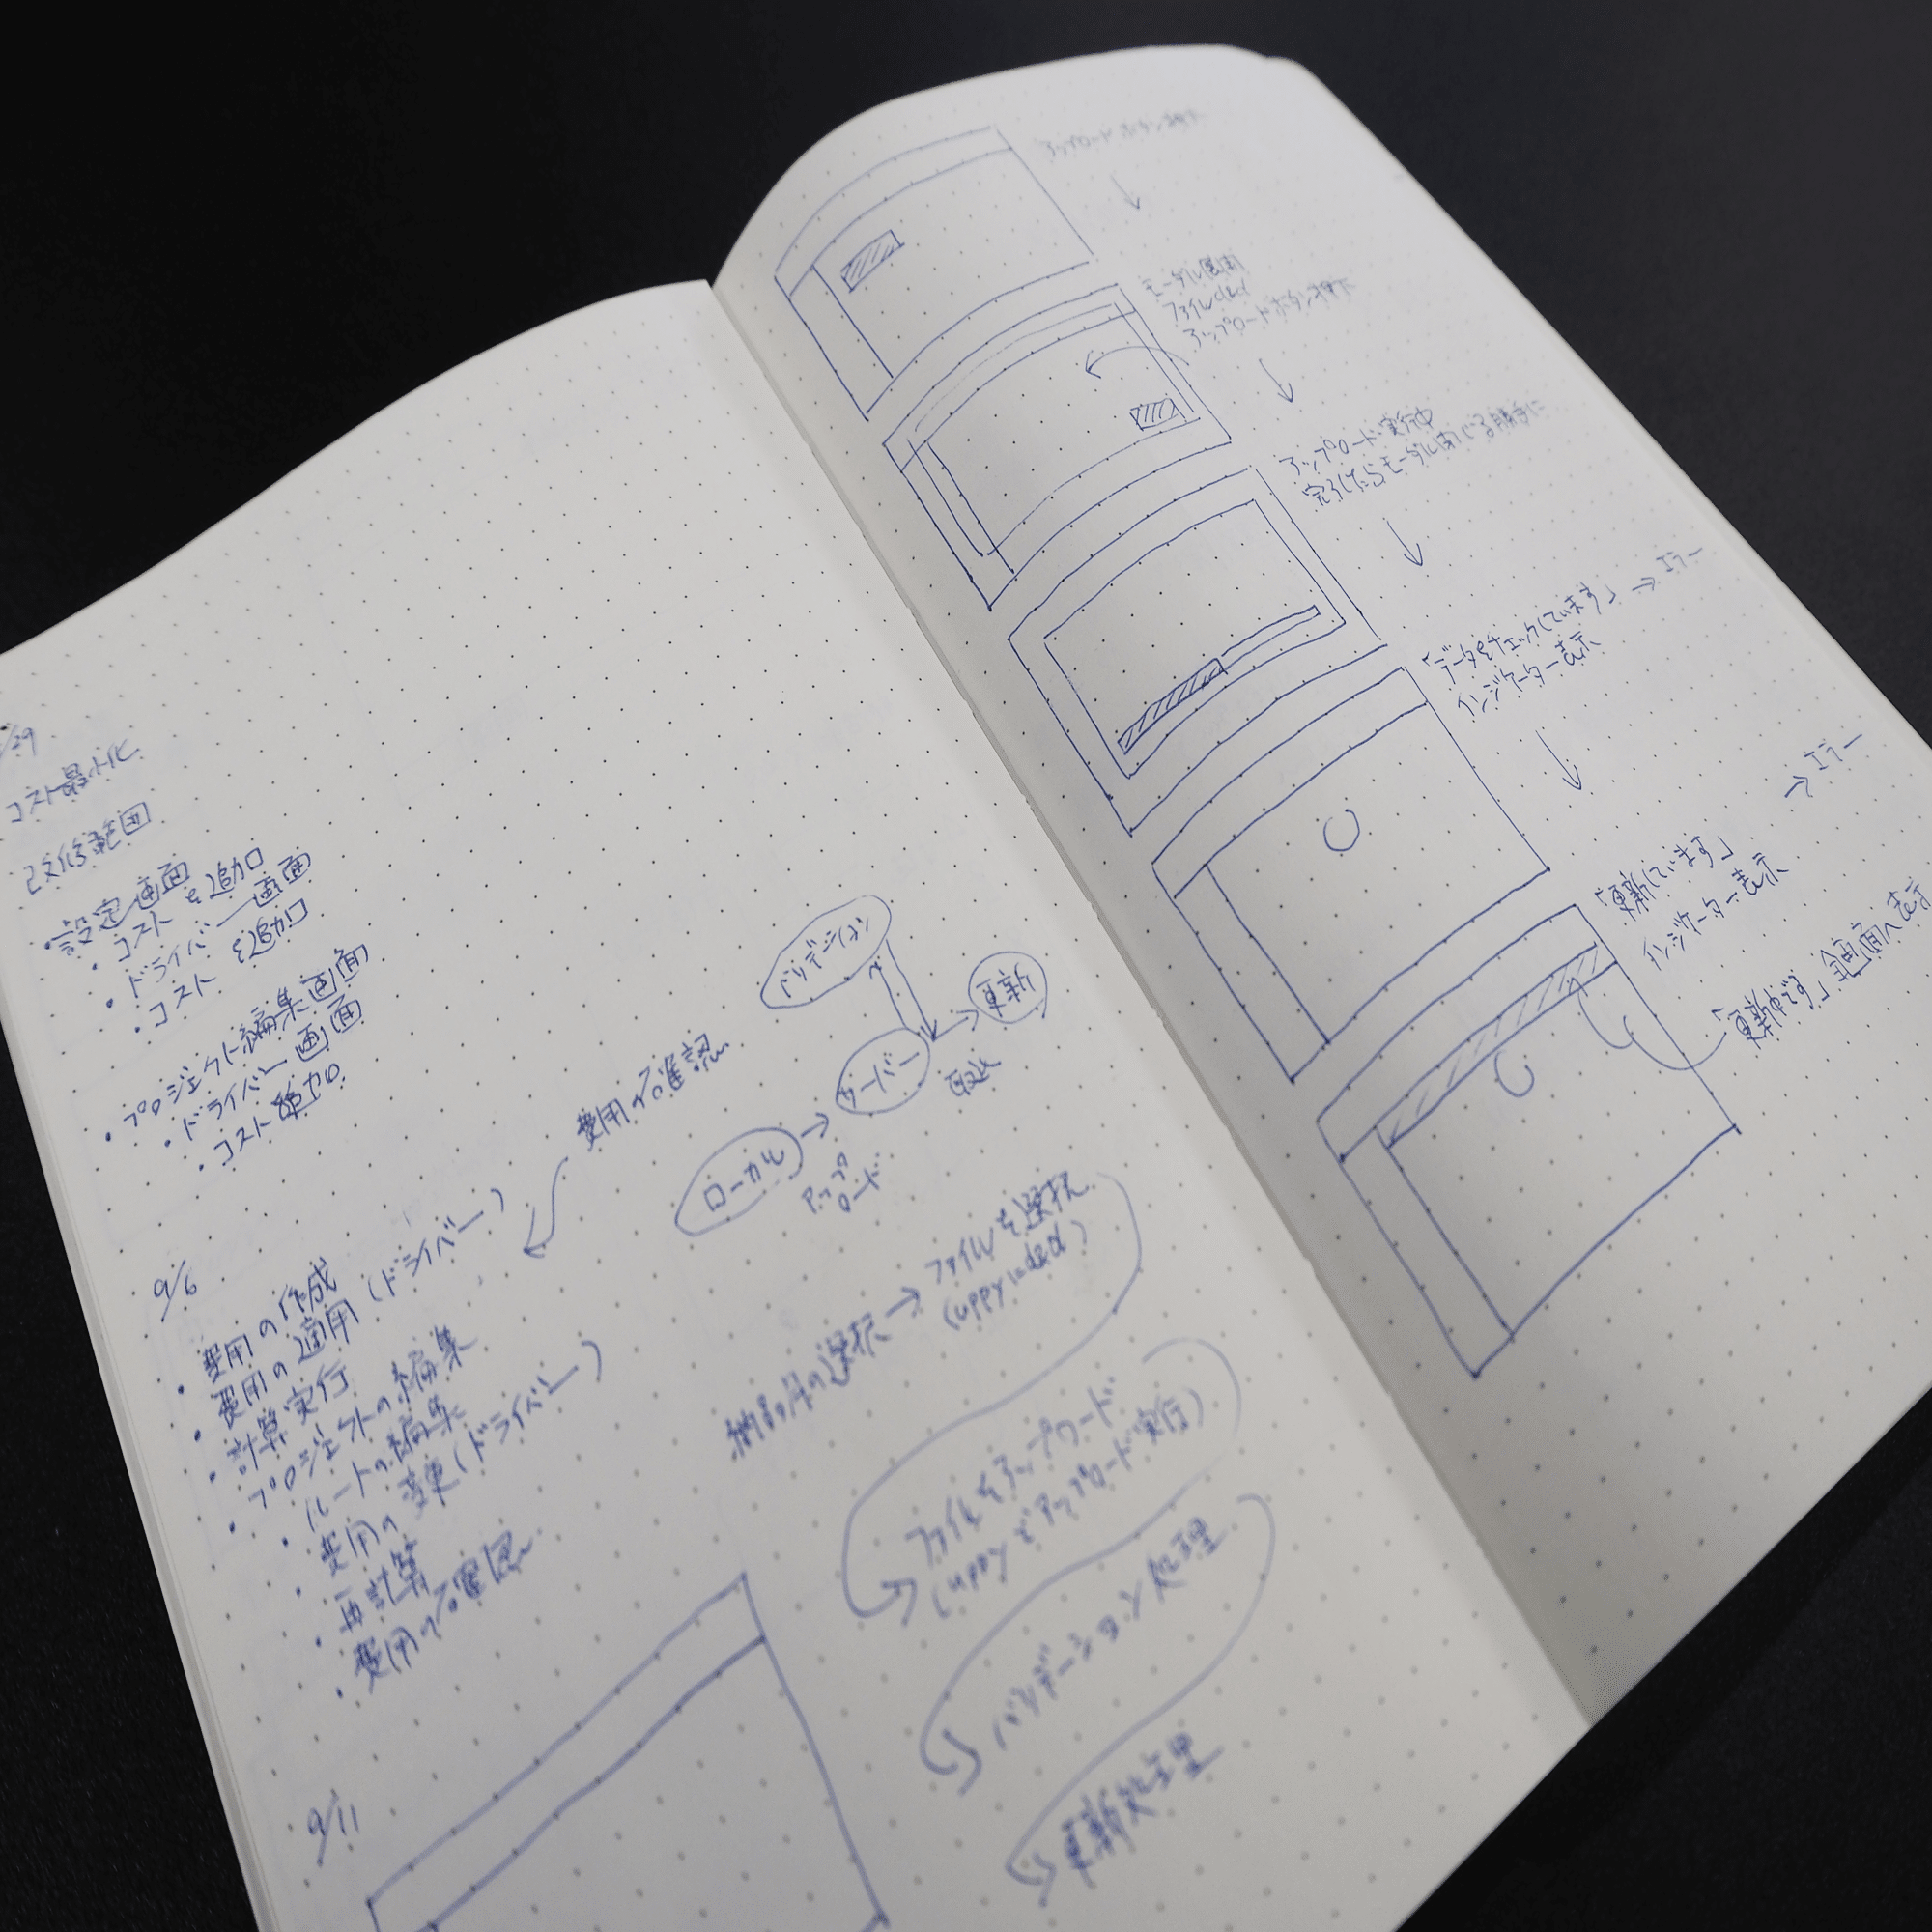 /29
コスト最小化
改修範囲
・設定画面
・コストを追加
・ドライバー画面
・コストを追加
・プロジェクト編集画面
・ドライバー画面
・コスト追加
9/6
・費用の作成
・費用の適用(ドライバー)
・計算実行
・プロジェクトの編集
・ルートの編集
・費用の変更(ドライバー)
・再計算
・費用の確認
費用の確認
9/11
バリデーション
更新
サーバー
取込
ローカル
アップロード
の選択→ファイルを選択
(uppyにd&d)
ファイルをアップロード
(uppyでアップロード実行)
バリデーション処理
更新処理
アップロードボタン押下
モーダル展開
ファイルd&d
アップロードボタン押下
アップロード実行中
完了したらモーダル閉じる勝手に
「データをチェックしています」→エラー
インジケーター表示
→エラー
「更新しています」
インジケーター表示
「更新中です」全画面へ表示